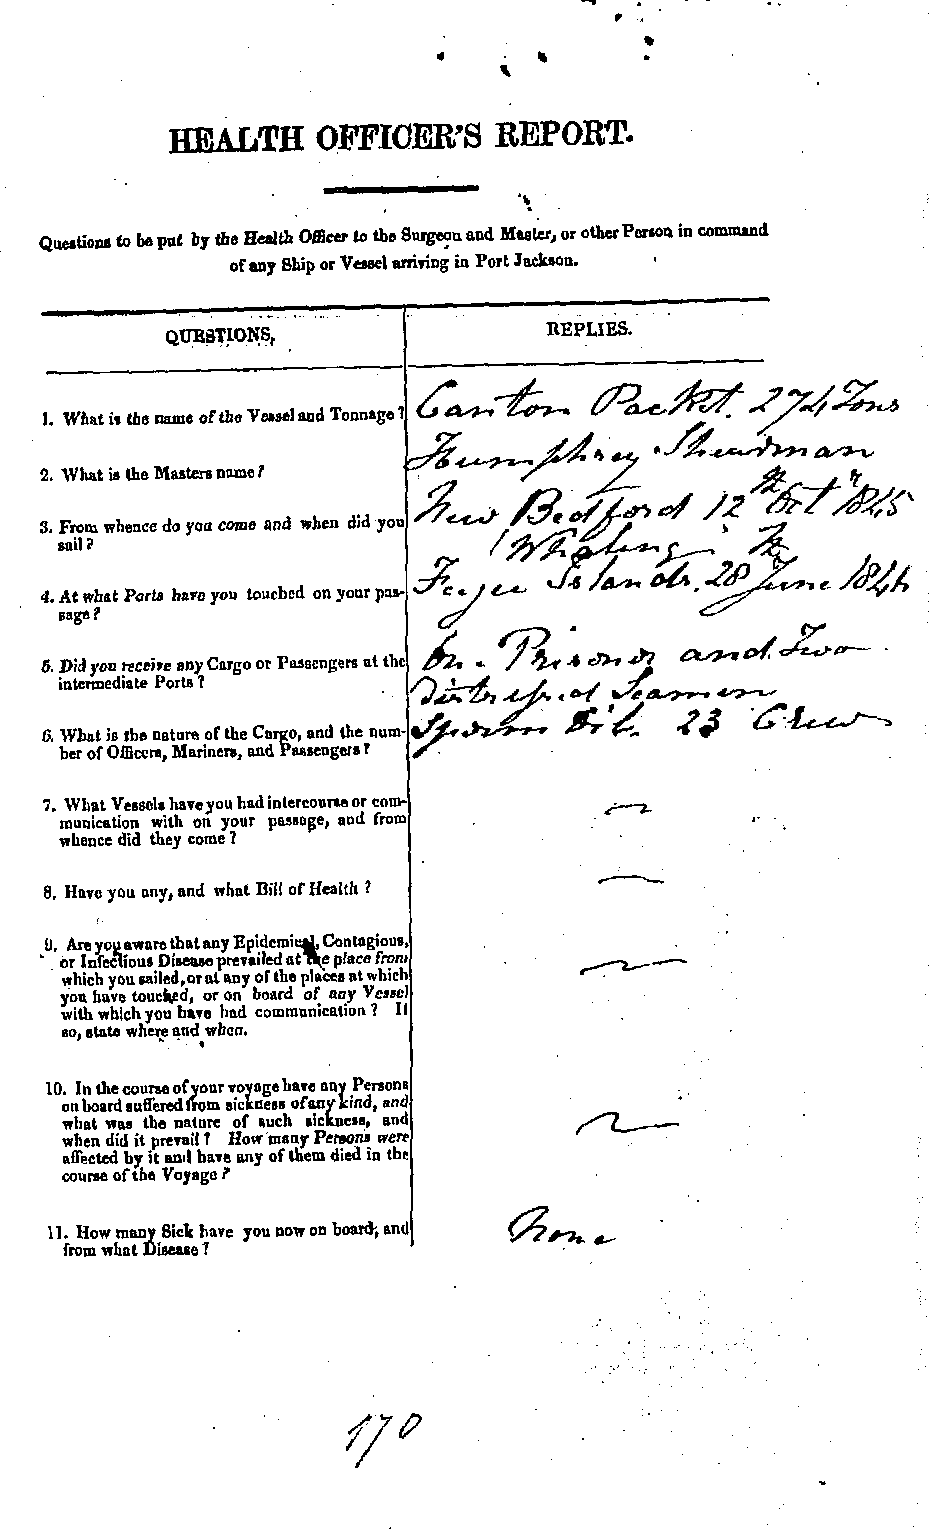 HEALTH OFFICER'S REPORT.
Questions to be put by the Health Officer to the Surgeon and Master, or other Person in command
of any Ship or Vessel arriving in Port Jackson.
QUESTIONS,
REPLIES.
1. What is the name of the Vessel and Tonnage?
Canton Packet. 274 Tons
2. What is the Masters name?
Humphrey Shearman
3. From whence do you come and when did you
sail?
New Bedford 12th Oct 1845
Whaling
4. At what Ports have you touched on your pas-
sage?
Feejee Islands. 28th June 1846
5. Did you receive any Cargo or Passengers at the
intermediate Ports?
On. Prisoner and Two
distressed Seamen
6. What is the nature of the Cargo, and the num-
ber of Officers, Mariners, and Passengers?
Sperm Oil. 23 Crew
7. What Vessels have you had intercourse or com-
munication with on your passage, and from
whence did they come?
8. Have you any, and what Bill of Health?
9. Are you aware that any Epidemical, Contagious,
or Infectious Disease prevailed at the place from
which you sailed, or at any of the places at which
you have touched, or on board of any Vessel
with which you have had communication? If
so, state where and when.
10. In the course of your voyage have any Persons
on board suffered from sickness of any kind, and
what was the nature of such sickness, and
when did it prevail? How many Persons were
affected by it and have any of them died in the
course of the Voyage?
11. How many Sick have you now on board, and
from what Disease?
None
170